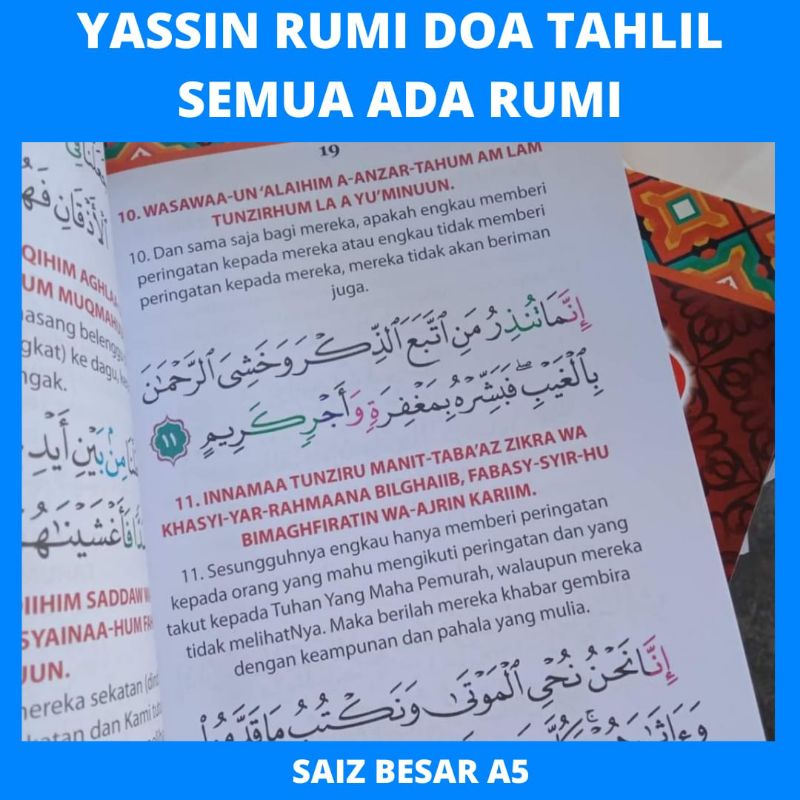 YASSIN RUMI DOA TAHLIL
SEMUA ADA RUMI
19
10. WASAWAA-UN ‘ALAIHIM A-ANZAR-TAHUM AM LAM
TUNZIRHUM LA A YU’MINUUN.
10. Dan sama saja bagi mereka, apakah engkau memberi
peringatan kepada mereka atau engkau tidak memberi
peringatan kepada mereka, mereka tidak akan beriman
juga.
إِنَّمَا تُنذِرُ مَنِ ٱتَّبَعَ ٱلذِّكْرَ وَخَشِىَ ٱلرَّحْمَٰنَ
بِٱلْغَيْبِ ۖ فَبَشِّرْهُ بِمَغْفِرَةٍ وَأَجْرٍ كَرِيمٍ ١١
11. INNAMAA TUNZIRU MANIT-TABA’AZ ZIKRA WA
KHASYI-YAR-RAHMAANA BILGHAIIB, FABASY-SYIR-HU
BIMAGHFIRATIN WA-AJRIN KARIIM.
11. Sesungguhnya engkau hanya memberi peringatan
kepada orang yang mahu mengikuti peringatan dan yang
takut kepada Tuhan Yang Maha Pemurah, walaupun mereka
tidak melihatNya. Maka berilah mereka khabar gembira
dengan keampunan dan pahala yang mulia.
إِنَّا نَحْنُ نُحْىِ ٱلْمَوْتَىٰ وَنَكْتُبُ مَا قَدَّمُوا۟
SAIZ BESAR A5